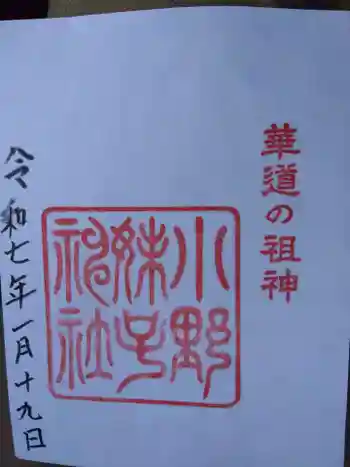 華道の祖神
小野
妹子
神社
令和七年一月十九日